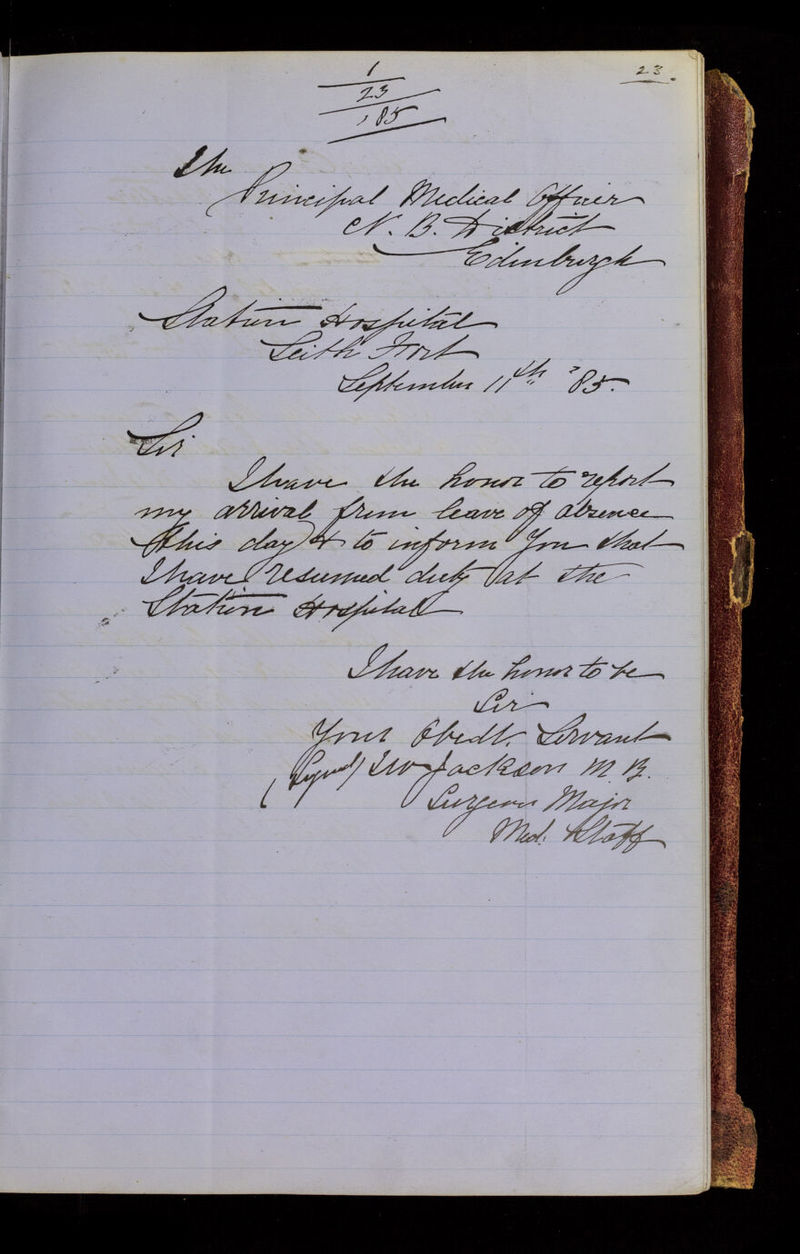 23.
1
23
'85
The
Principal Medical Officer
N. B. District
Edinburgh
Station Hospital
Leith Fort
September 11th '85.
Sir
I have the honor to report
my arrival from leave of absence
this day & to inform you that
I have resumed duty at the
Station Hospital
I have the honor to be
Sir
Your Obedt. Servant
(Signed) Jackson M. B.
Surgeon Major
Med. Staff